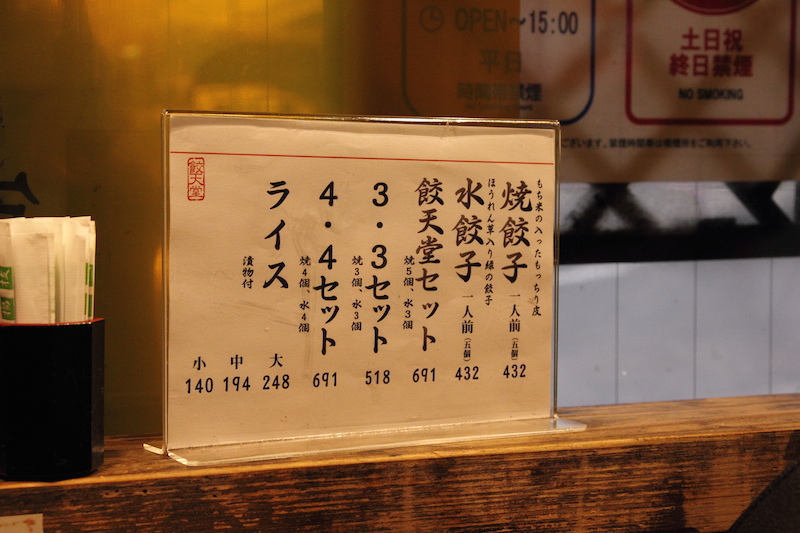 OPEN～15:00
平日
時間帯禁煙
土日祝
終日禁煙
NO SMOKING
もち米の入ったもっちり皮
焼餃子 一人前(五個) 432
ほうれん草入り緑の餃子
水餃子 一人前(五個) 432
餃天堂セット 691
焼5個、水3個
3・3セット 518
焼3個、水3個
4・4セット 691
焼4個、水4個
ライス
漬物付
大 248
中 194
小 140
餃天堂